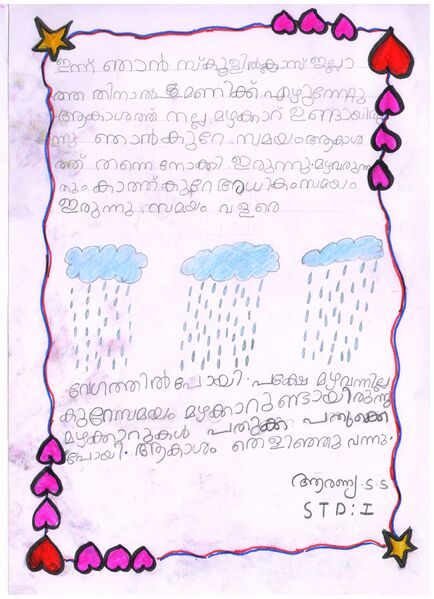 ഇന്ന് ഞാൻ സ്കൂളിൽ ക്ലാസ് ഇല്ലാ
ത്ത തിനാൽ 8 മണിക്ക് എഴുന്നേറ്റു
ആകാശത്ത് നല്ല മഴക്കാറ് ഉണ്ടായിരു
ന്നു ഞാൻ കുറേ സമയം ആകാശ
ത്ത് തന്നെ നോക്കി ഇരുന്നു. മഴവരുന്ന
തും കാത്ത് കുറേ അധികം സമയം
ഇരുന്നു. സമയം വളരെ
വേഗത്തിൽ പോയി. പക്ഷേ മഴവന്നില്ല
കുറേസമയം മഴക്കാറുണ്ടായിരുന്നു
മഴക്കാറുകൾ പതുക്കെ പതുക്കെ
പോയി. ആകാശം തെളിഞ്ഞു വന്നു.
ആരണ്യ. S.S
STD: I